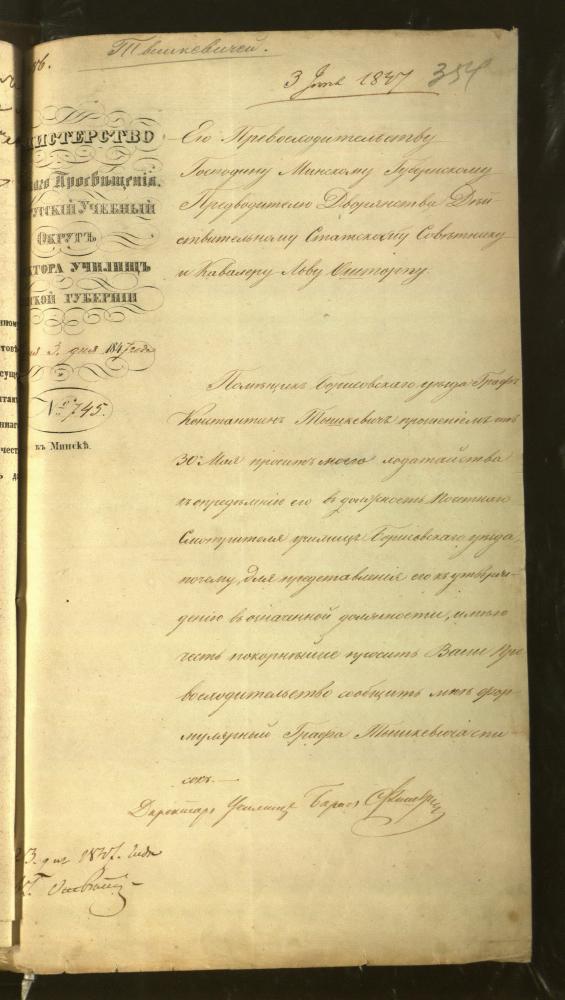 56.
Тышкевичей.
3 Іюня 1847
354
НИСТЕРСТВО
наго Просвѣщенія.
РУССКІЙ УЧЕБНЫЙ
ОКРУГЪ
КТОРА УЧИЛИЩЪ
СКОЙ ГУБЕРНІИ
3 дня 1847 года
№ 745.
въ Минскѣ.
Его Превосходительству
Господину Минскому Губернскому
Предводителю Дворянства Дѣй
ствительному Статскому Совѣтнику
и Кавалеру Льву Ошторпу.
Помѣщикъ Борисовскаго уѣзда Графъ
Константинъ Тышкевичъ прошеніемъ отъ
30 Мая проситъ моего ходатайства
къ опредѣленію его въ должность Почетнаго
Смотрителя училищъ Борисовскаго уѣзда,
почему, для представленія его къ утверж-
денію въ означенной должности, имѣю
честь покорнѣйше просить Ваше Пре
восходительство сообщить мнѣ фор-
мулярный Графа Тышкевича спи-
сокъ.—
Директоръ Училищъ Баронъ
3. дня 1847. года